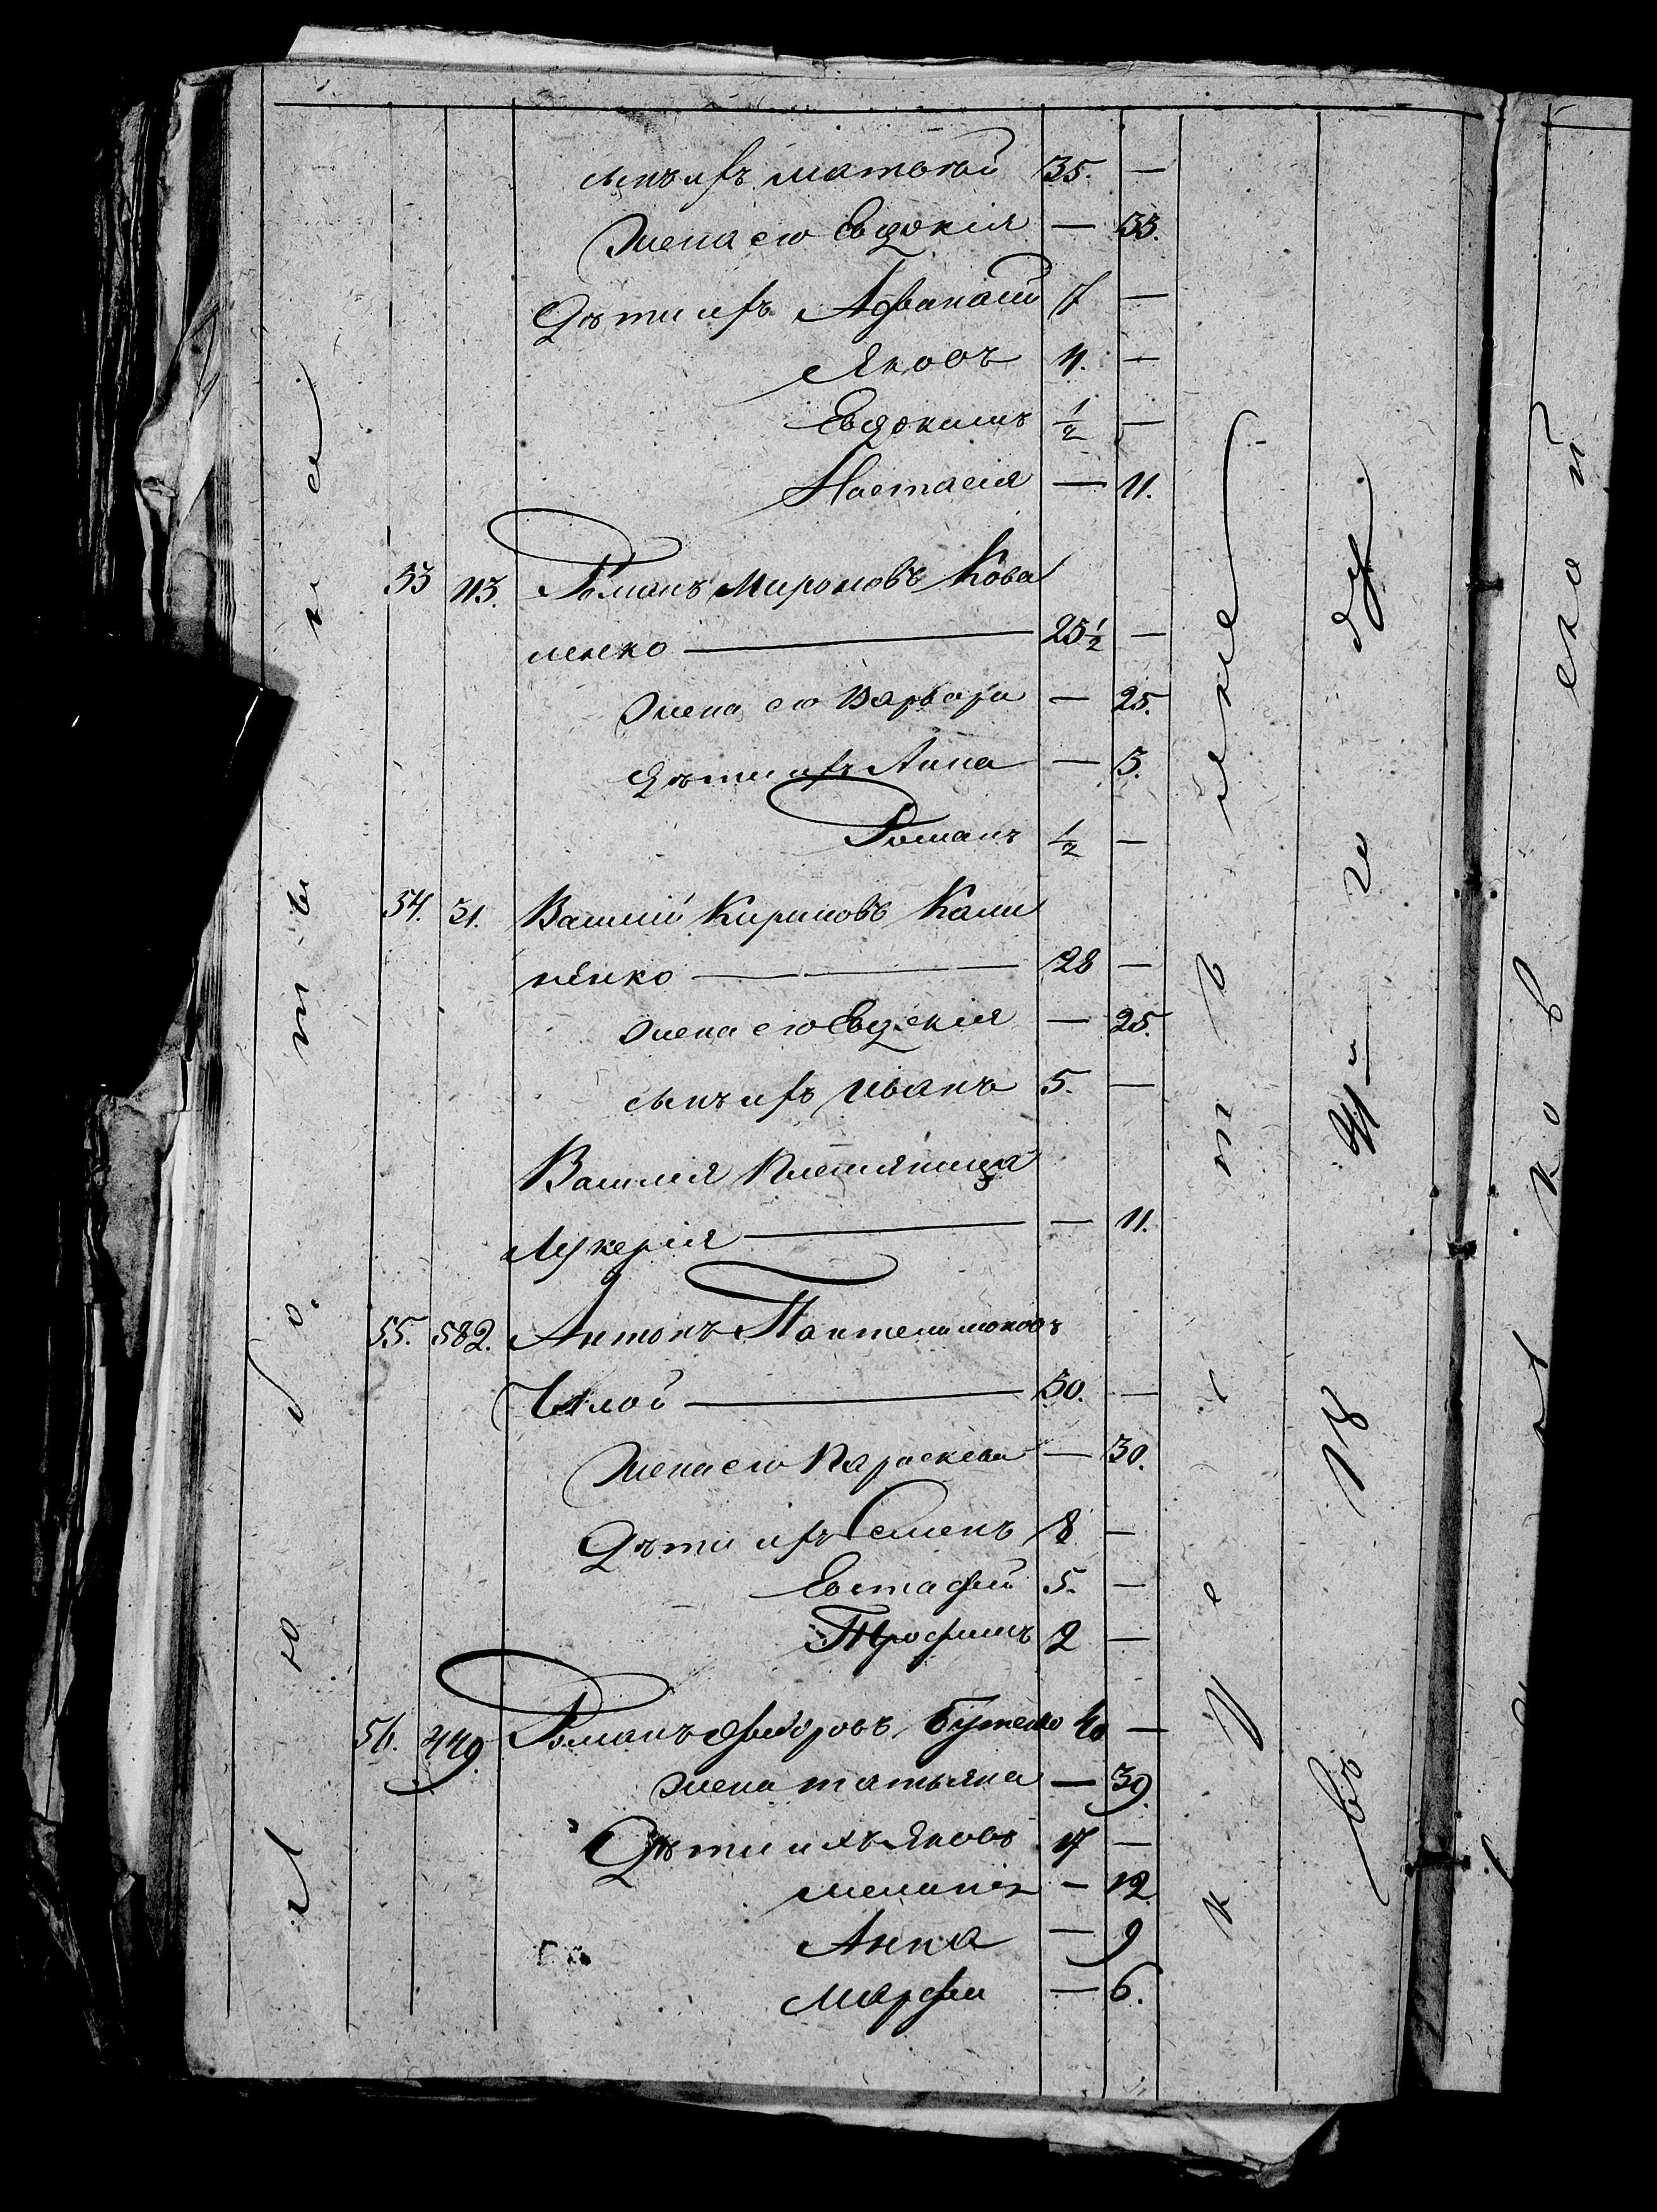 сынъ ихъ Матвей 35. —
Жена его Евдокія — 33.
Дѣти ихъ Афанасій 7 —
Яковъ 4. —
Евдокимъ 1/2 —
Настасія — 11.
53 113. Романъ Мироновъ Кова
ленко — 25 1/2 —
Жена его Варвара — 25.
Дѣти ихъ Анна — 3.
Романъ 1/2 —
54. 31. Василій Кириловъ Кали
ненко — 28 —
Жена его Евдокія — 25.
сынъ ихъ Иванъ 5. —
Василія Племянница
Лукерія — — 11.
55. 582. Антонъ Пантелимоновъ
— 30. —
Жена его Параскева — 30.
Дѣти ихъ Семенъ 8 —
Евстафій 5. —
Трофимъ 2 —
56. 449 Романъ Федоровъ Бутенко 40 —
Жена татьяна — 39.
Дѣти ихъ Яковъ 17 —
меланія — 12
Анна — 9
Марфа — 6.
въ 18 году